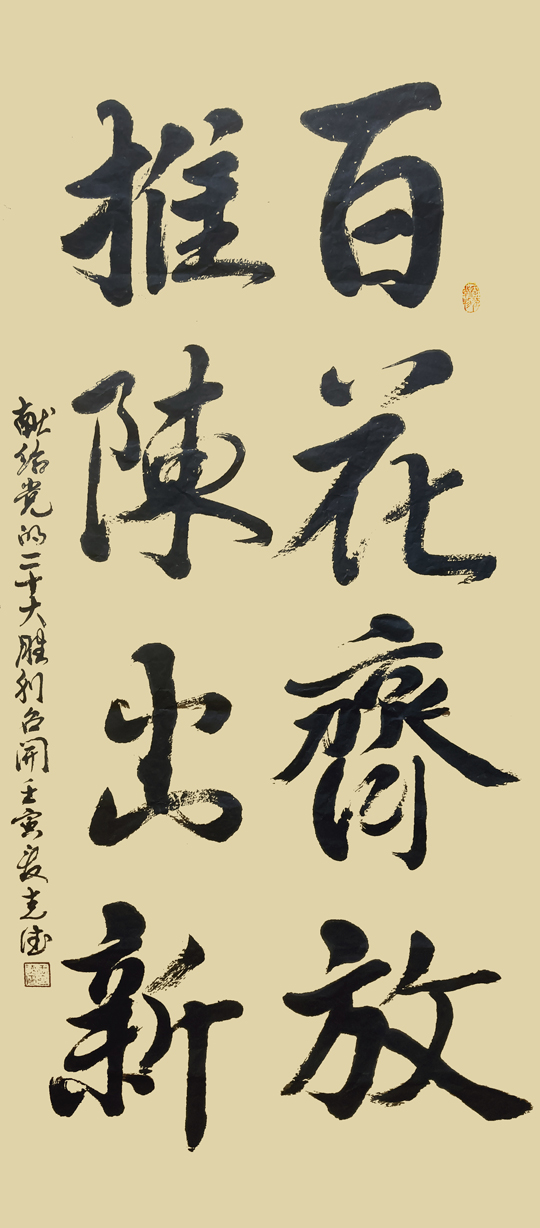 百花齊放
推陳出新
献给党的二十大胜利召開壬寅夏克德